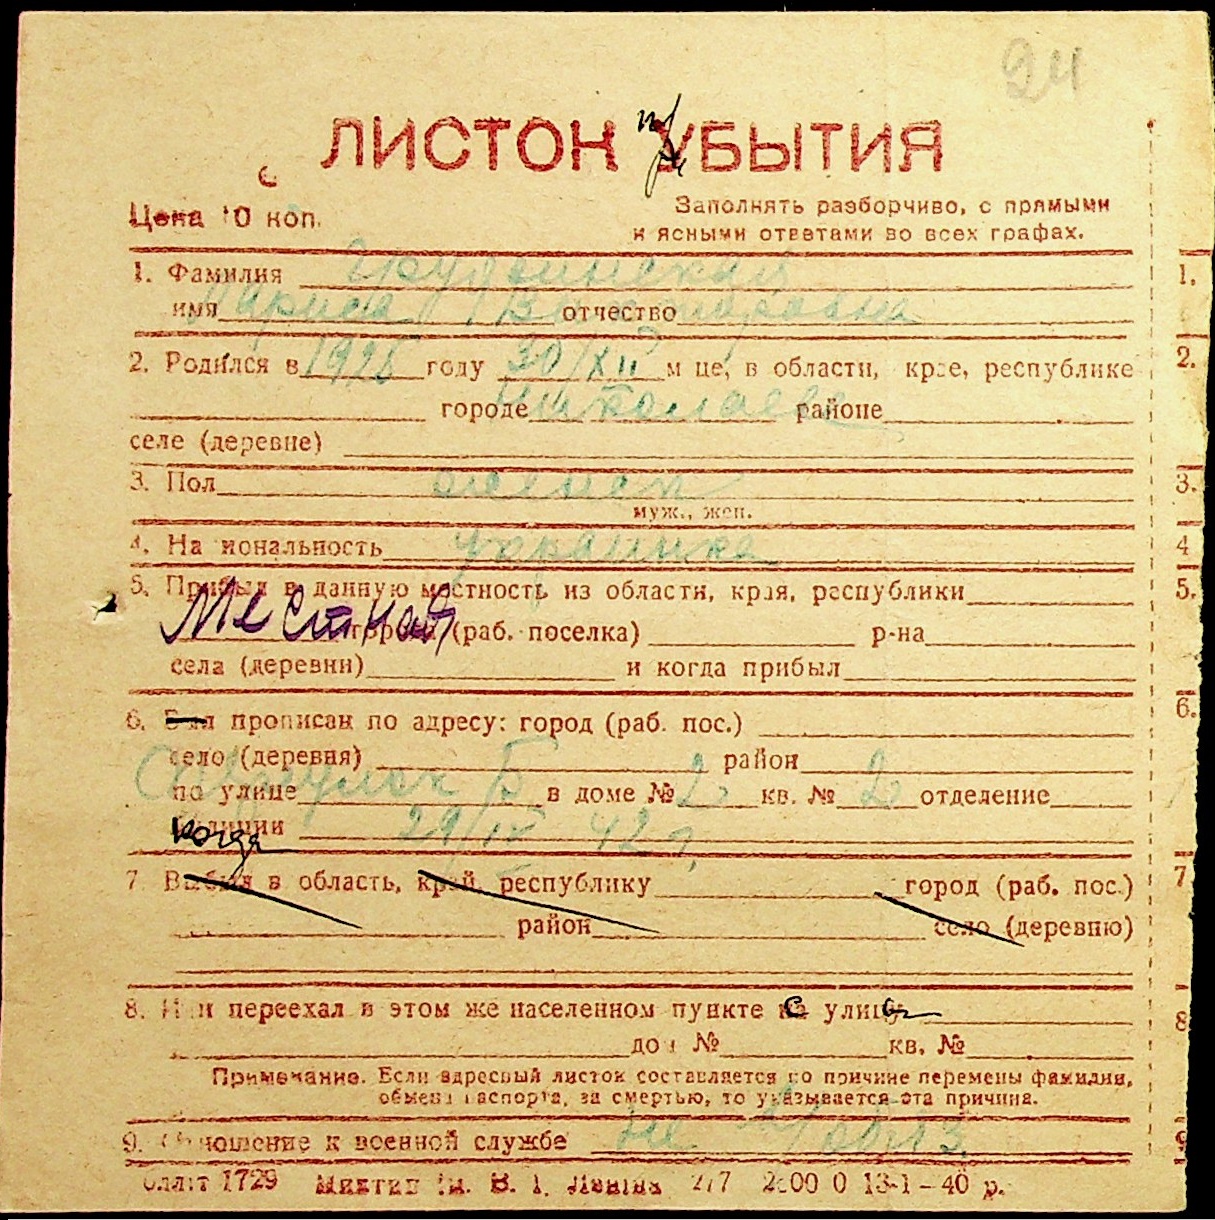 24
ЛИСТОК УБЫТИЯ
при
Цена 10 коп.
Заполнять разборчиво, с прямыми
и ясными ответами во всех графах.
1. Фамилия
имя Лариса отчество Викторовна
2. Родился в 1925 году 30/XII м-це, в области, крае, республике
городе Николаеве районе
селе (деревне)
3. Пол женск
муж., жен.
4. Национальность украинка
5. Прибыл в данную местность из области, края, республики
Местная города (раб. поселка) р-на
села (деревни) и когда прибыл
6. Был прописан по адресу: город (раб. пос.)
село (деревня) район
по улице Б. в доме № 2 кв. № 2 отделение
милиции когда 29/IX 42 г.
7. Выбыл в область, край, республику город (раб. пос.)
район село (деревню)
8. Или переехал в этом же населенном пункте с улицы
дом № кв. №
Примечание. Если адресный листок составляется по причине перемены фамилии,
обмена паспорта, за смертью, то указывается эта причина.
9. Отношение к военной службе не
1729 им. В. И. Ленина 277 13-1-40 р.
1.
2.
3.
4
5.
6.
7
8
9